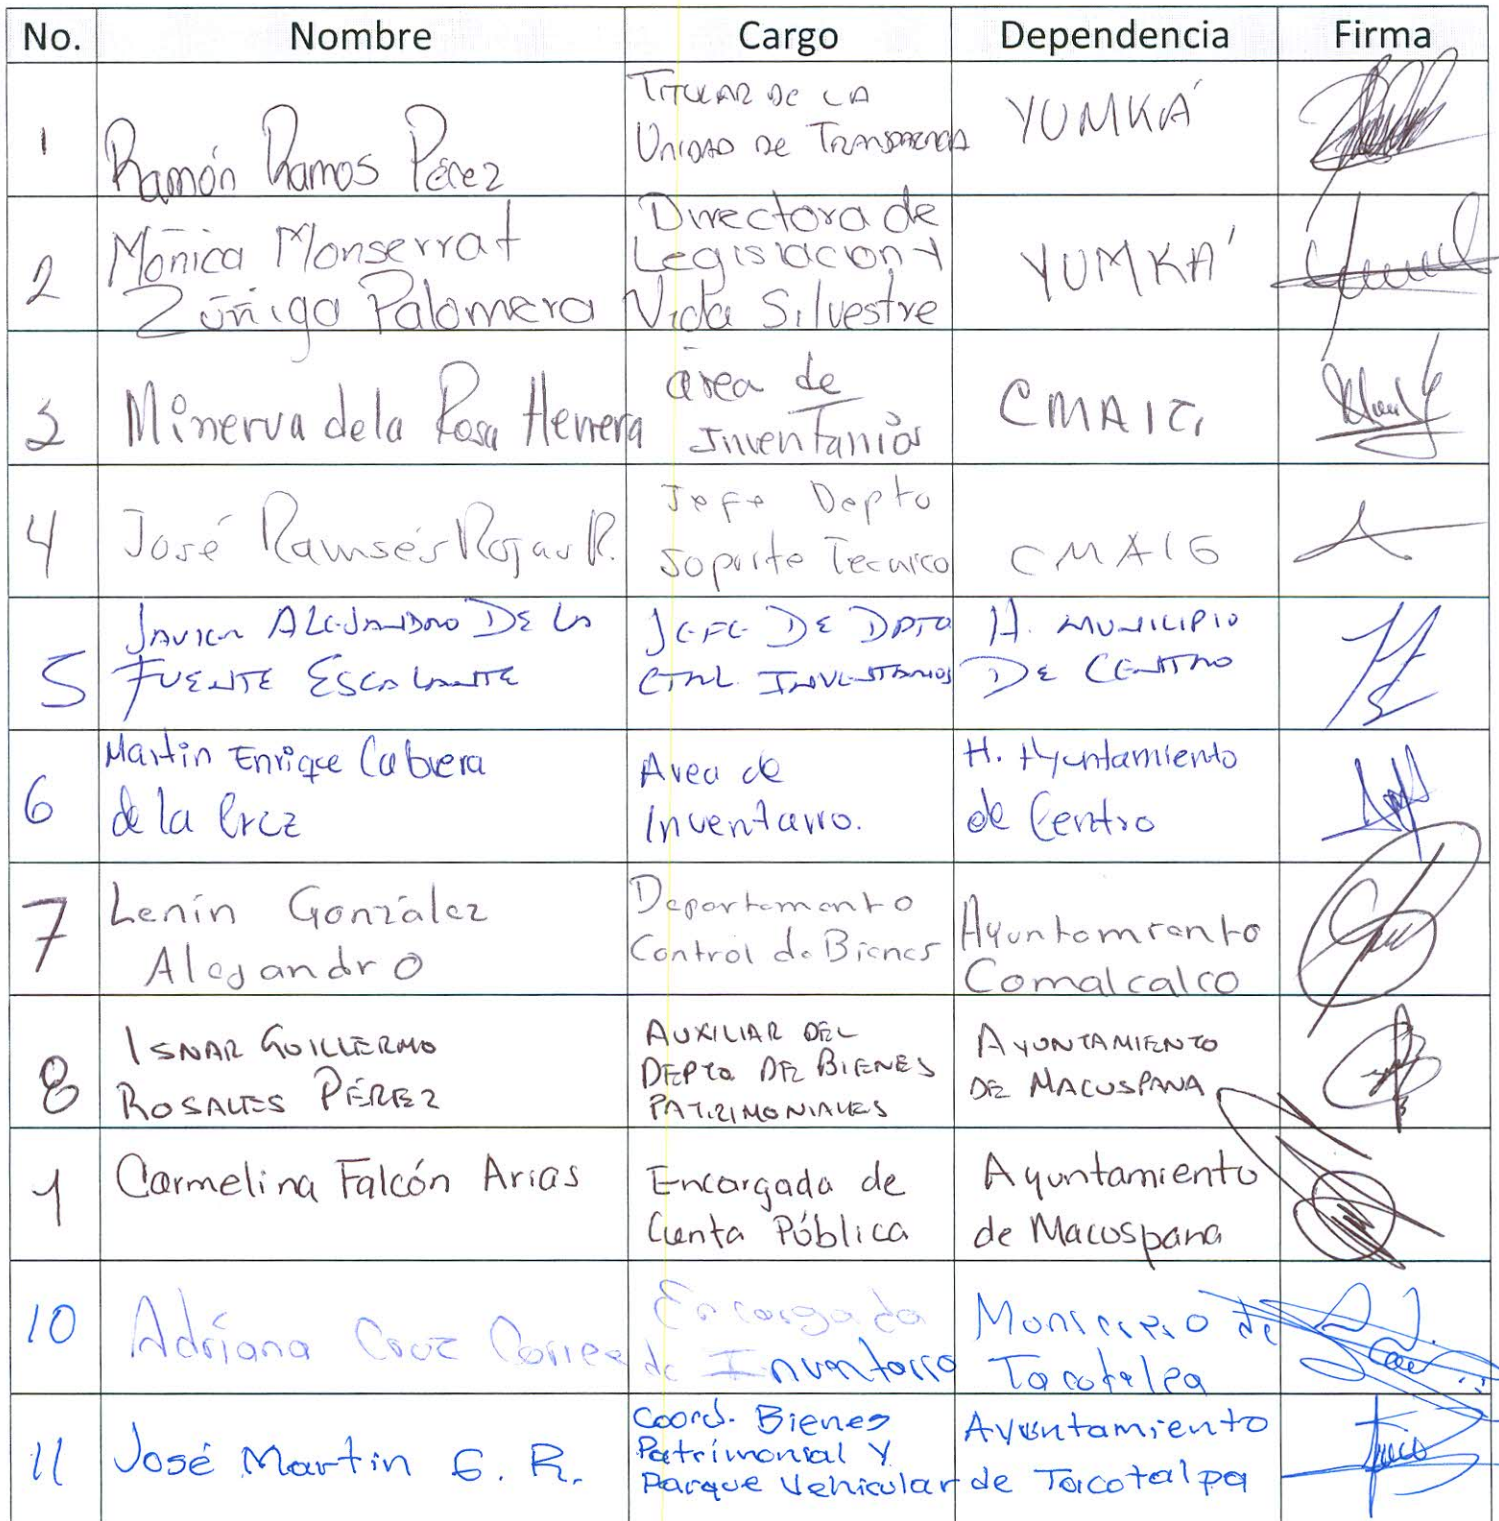 No. Nombre Cargo Dependencia Firma
1
Ramón Ramos Pérez
TITULAR DE LA
UNIDAD DE TRANSPARENCIA
YUMKÁ
2
Mónica Monserrat
Zúñiga Palomera
Directora de
Legislacion y
Vida Silvestre
YUMKÁ
3
Minerva de la Rosa Herrera
área de
Inventarios
CMAIG
4
José Ramsés Rojas R.
Jefe Depto
Soporte Tecnico
CMAIG
5
JAVIER ALEJANDRO DE LA
FUENTE ESCALANTE
JEFE DE DPTO
CTRL INVENTARIOS
H. MUNICIPIO
DE CENTRO
6
Martin Enrique Cabrera
de la Cruz
Area de
Inventario.
H. Ayuntamiento
de Centro
7
Lenin González
Alejandro
Departamento
Control de Bienes
Ayuntamiento
Comalcalco
8
ISNAR GUILLERMO
ROSALES PÉREZ
AUXILIAR DEL
DEPTO DE BIENES
PATRIMONIALES
AYUNTAMIENTO
DE MACUSPANA
9
Carmelina Falcón Arias
Encargada de
Cuenta Pública
Ayuntamiento
de Macuspana
10
Adriana Cruz Correa
Encargada
de Inventario
Municipio de
Tacotalpa
11
José Martin G. R.
Coord. Bienes
Patrimonial Y
Parque Vehicular
Ayuntamiento
de Tacotalpa